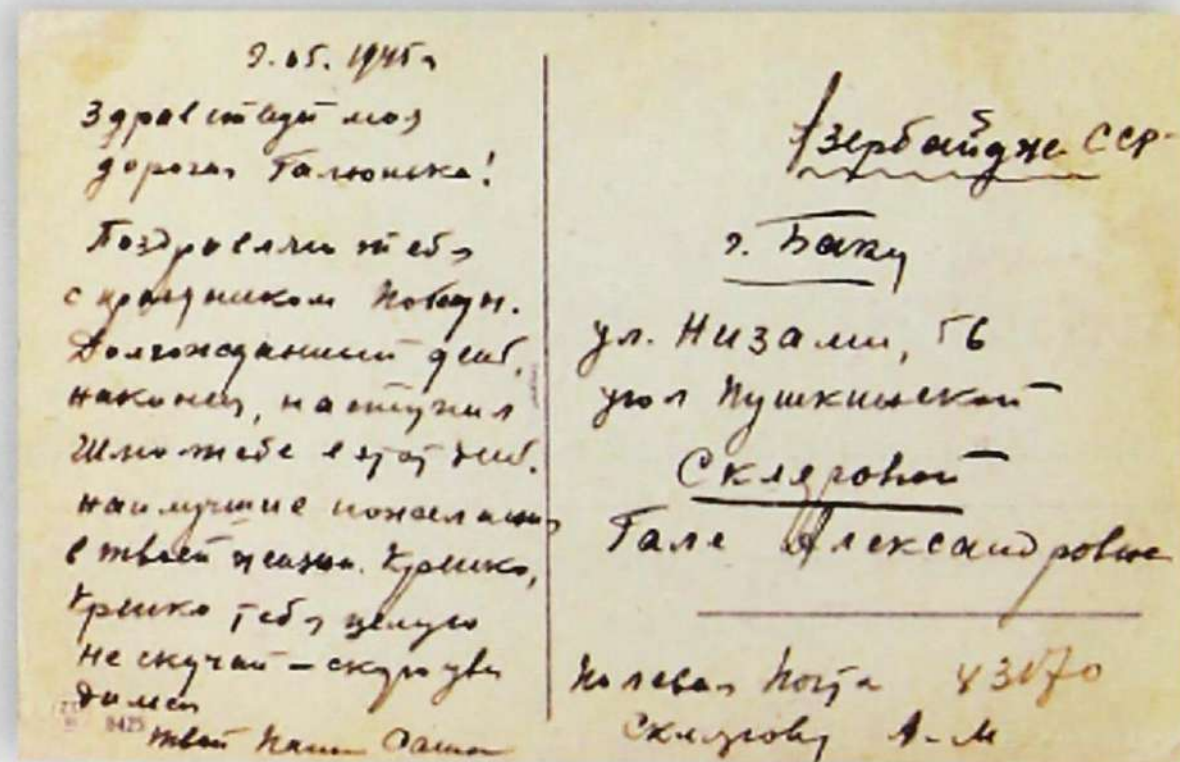 9.05.1945г
Здравствуй моя
дорогая Галюнька!
Поздравляю тебя
с праздником Победы.
Долгожданный день,
наконец, наступил
Шлю тебе в этот день
наилучшие пожелания
в твоей жизни. Крепко,
Крепко тебя целую
не скучай – скоро уви
димся
твой папа Саша
9425
Азербайдж. ССР
г. Баку
ул. Низами, 56
угол Пушкинской
Скляровой
Гале Александровне
Полевая Почта
Склярову А. М